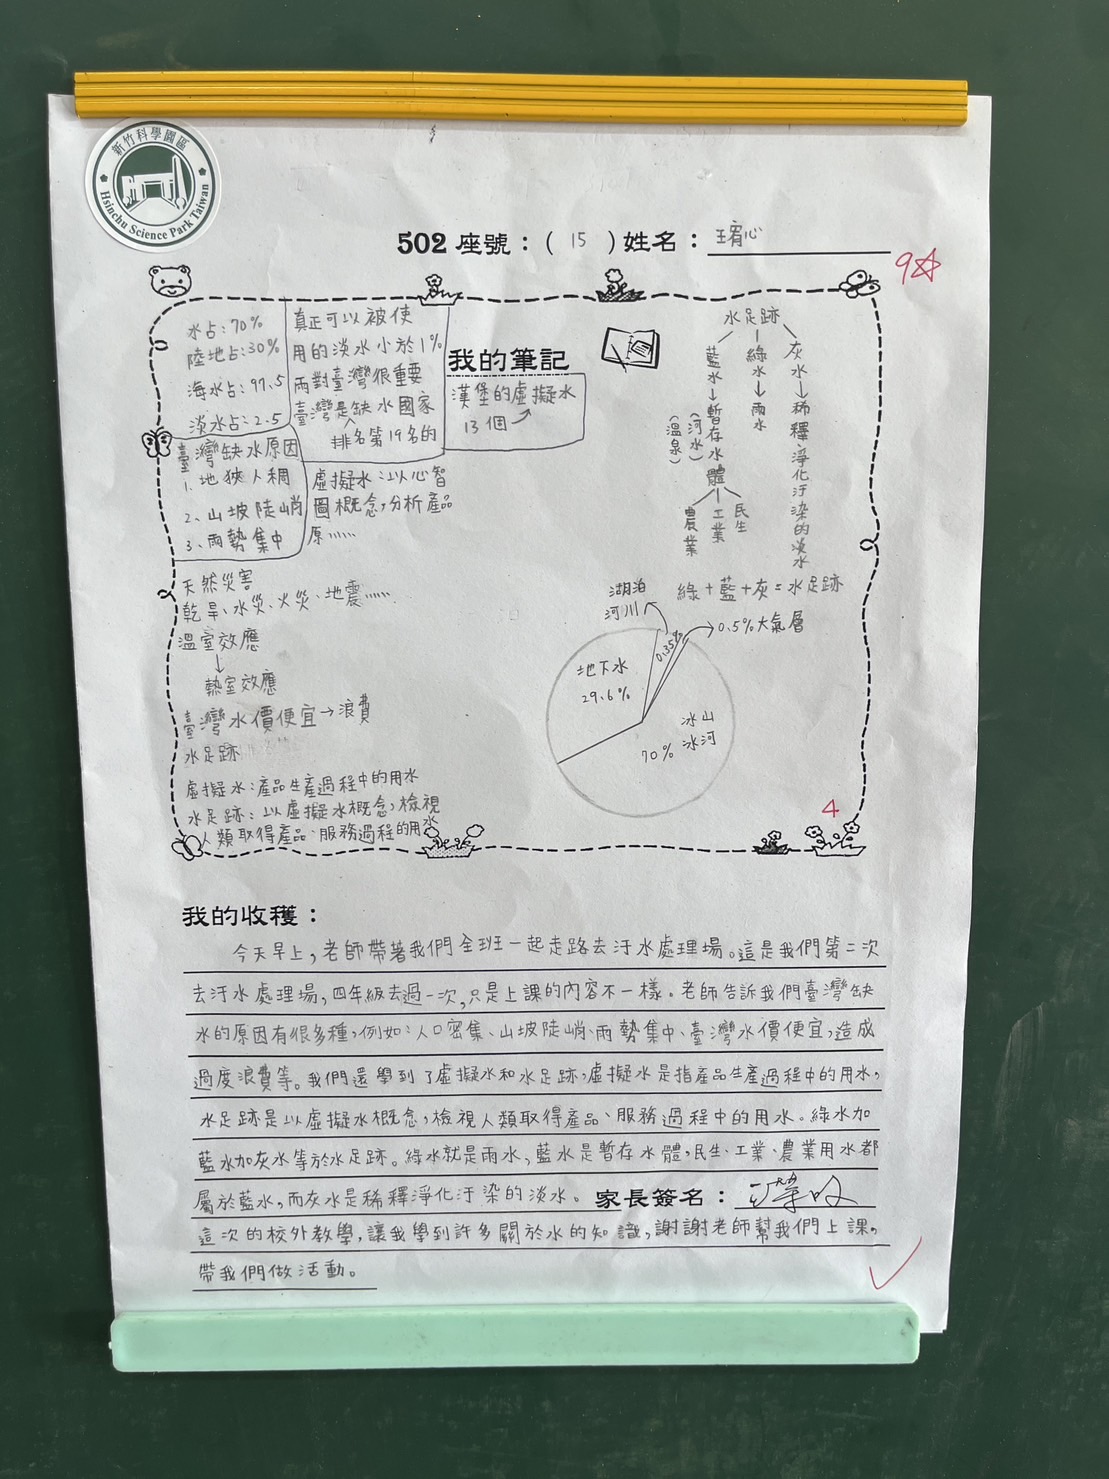 新竹科學園區
Hsinchu Science Park Taiwan
502 座號：( 15 ) 姓名：王宥心
9☆
水占:70%
陸地占:30%
海水占:97.5
淡水占:2.5
真正可以被使
用的淡水小於1%
雨對臺灣很重要
臺灣是缺水國家
排名第19名的
我的筆記
漢堡的虛擬水
13個
臺灣缺水原因
1.地狹人稠
2、山坡陡峭
3、雨勢集中
虛擬水:以心智
圖概念,分析產品
原......
天然災害
乾旱、水災、火災、地震......
溫室效應
↓
熱室效應
臺灣水價便宜→浪費
水足跡
虛擬水:產品生產過程中的用水
水足跡:以虛擬水概念,檢視
人類取得產品、服務過程的用水
水足跡
藍水→暫存水體
(河水)
(溫泉)
農業
工業
民生
綠水→雨水
灰水→稀釋淨化汙染的淡水
綠+藍+灰=水足跡
湖泊
河川
0.35%
0.5%大氣層
地下水
29.6%
冰山
冰河
70%
4
我的收穫：
今天早上,老師帶著我們全班一起走路去汙水處理場。這是我們第二次
去汙水處理場,四年級去過一次,只是上課的內容不一樣。老師告訴我們臺灣缺
水的原因有很多種,例如:人口密集、山坡陡峭、雨勢集中、臺灣水價便宜,造成
過度浪費等。我們還學到了虛擬水和水足跡,虛擬水是指產品生產過程中的用水,
水足跡是以虛擬水概念,檢視人類取得產品、服務過程中的用水。綠水加
藍水加灰水等於水足跡。綠水就是雨水,藍水是暫存水體,民生、工業、農業用水都
屬於藍水,而灰水是稀釋淨化汙染的淡水。 家長簽名：
這次的校外教學,讓我學到許多關於水的知識,謝謝老師幫我們上課,
帶我們做活動。